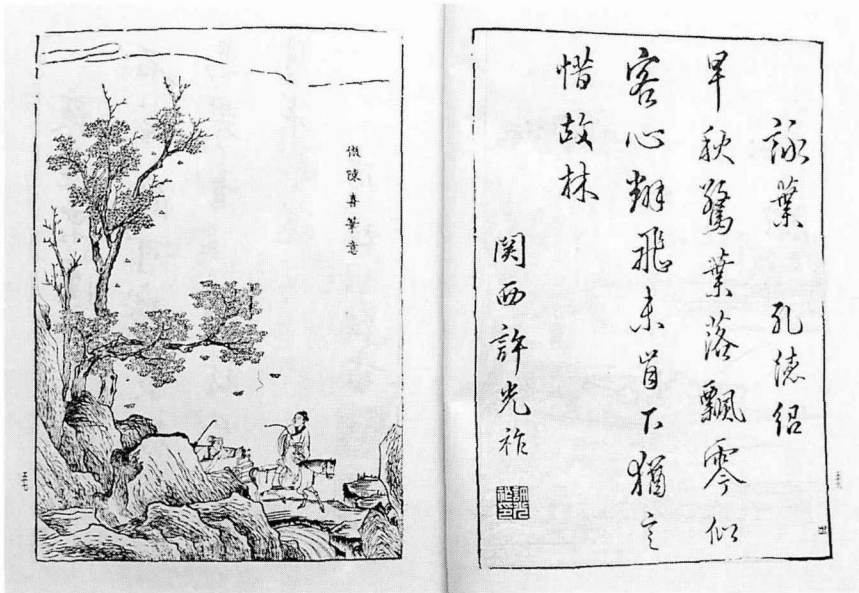 詠葉 孔德紹
早秋驚葉落飄零似
客心翻飛未肯下猶言
惜故林
関西許光祚
許光祚印
倣陳喜筆意